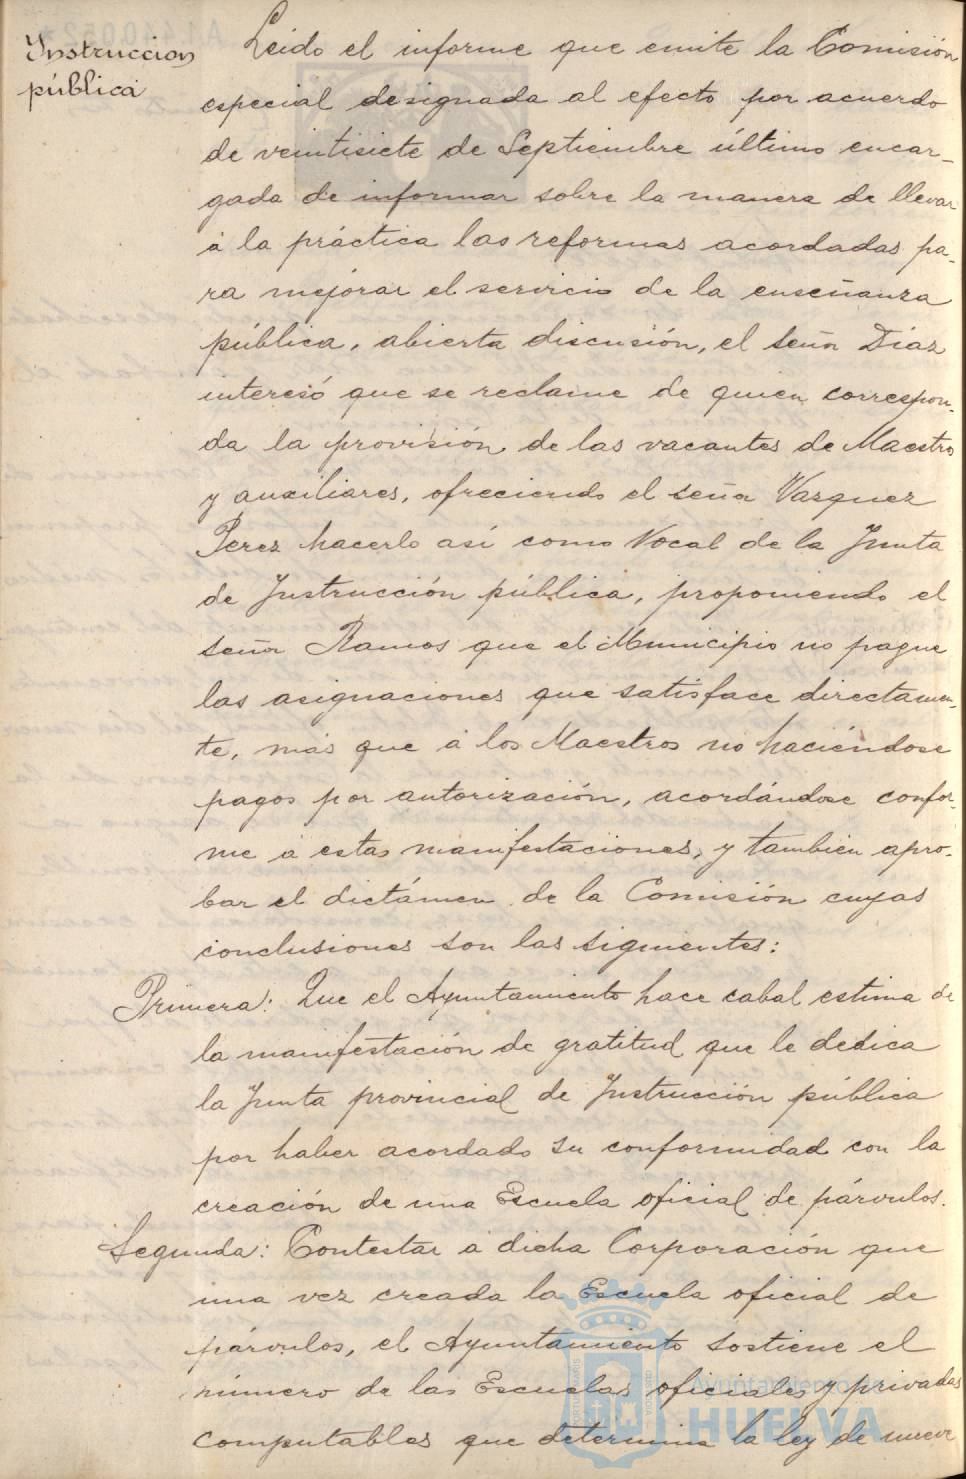 Instruccion
pública
Leido el informe que emite la Comisión
especial designada al efecto por acuerdo
de veintisiete de Septiembre último encar-
gada de informar sobre la manera de llevar
á la práctica las reformas acordadas pa-
ra mejorar el servicio de la enseñanza
pública, abierta discusión, el señor Díaz
interesó que se reclame de quien correspon-
da la provisión de las vacantes de Maestro
y auxiliares, ofreciendo el señor Vazquez
Perez hacerlo así como Vocal de la Junta
de Instrucción pública, proponiendo el
señor Ramos que el Municipio no pague
las asignaciones que satisface directamen-
te, más que á los Maestros no haciéndose
pagos por autorización, acordándose confor-
me á estas manifestaciones, y también apro-
bar el dictámen de la Comisión cuyas
conclusiones son las siguientes:
Primera: Que el Ayuntamiento hace cabal estima de
la manifestación de gratitud que le dedica
la Junta provincial de Instrucción pública
por haber acordado su conformidad con la
creación de una Escuela oficial de párvulos.
Segunda: Contestar á dicha Corporación que
una vez creada la Escuela oficial de
párvulos, el Ayuntamiento sostiene el
número de las Escuelas oficiales y privadas
computables que determina la ley de nueve
Ayuntamiento de
HUELVA